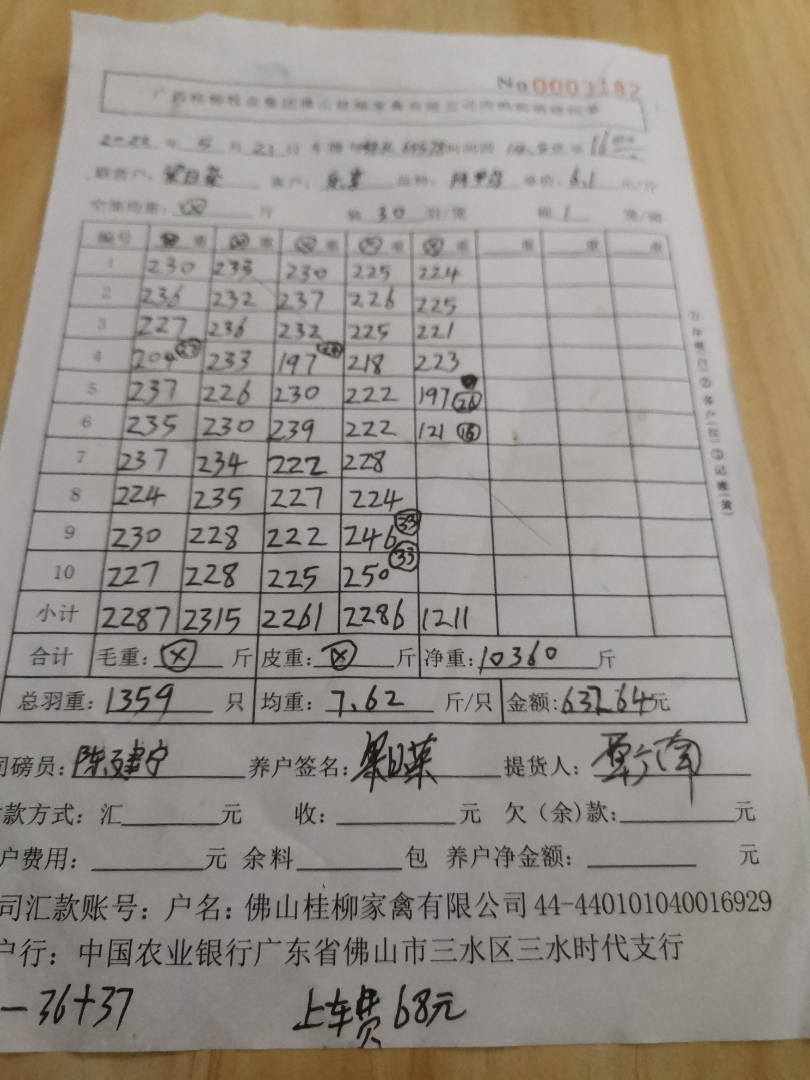 No 0003182
2022 年 5 月 21 日
编号 重 重 重 重 重 重 重 重
1 230 233 230 225 224
2 236 232 237 226 225
3 227 236 232 225 221
4 204 233 197 218 223
5 237 226 230 222 197 26
6 235 230 239 222 121
7 237 234 222 228
8 224 235 227 224
9 230 228 222 246 33
10 227 228 225 250 33
小计 2287 2315 2261 2286 1211
合计 毛重: 斤 皮重: 斤 净重: 10360 斤
总羽重: 1359 只 均重: 7.62 斤/只 金额: 63264 元
磅员: 陈建宁 养户签名: 提货人:
款方式: 汇 元 收: 元 欠(余)款: 元
户费用: 元 余料 包 养户净金额: 元
司汇款账号: 户名: 佛山桂柳家禽有限公司 44-440101040016929
户行: 中国农业银行广东省佛山市三水区三水时代支行
-36+37 上车费 68元